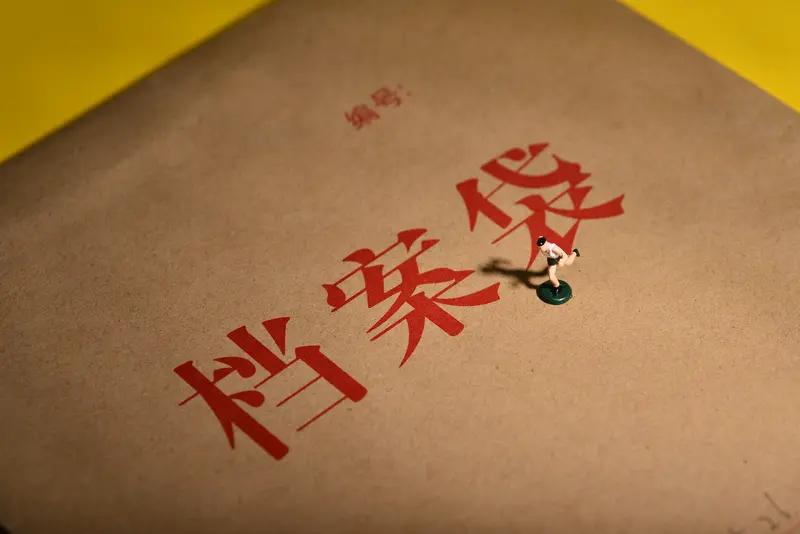 编号:
档案袋
21